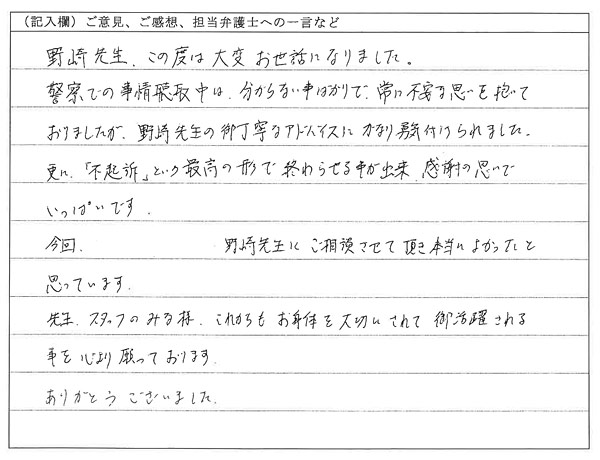 （記入欄）ご意見、ご感想、担当弁護士への一言など
野崎先生、この度は大変お世話になりました。
警察での事情聴取中は、分からない事ばかりで、常に不安な思いを抱いて
おりましたが、野崎先生の御丁寧なアドバイスにかなり勇気付けられました。
更に、「不起訴」という最高の形で終わらせる事が出来、感謝の思いで
いっぱいです。
今回、 野崎先生にご相談させて頂き本当によかったと
思っています。
先生、スタッフのみな様、これからもお身体を大切にされて御活躍される
事を心より願っております。
ありがとうございました。